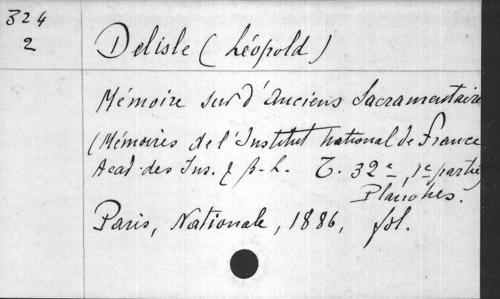 324
2
Delisle (Léopold)
Mémoire sur d'anciens Sacramentaire
(Mémoires de l'Institut national de France
Acad. des Ins. & B-L. T. 32e, 1e partie
Planches.
Paris, Nationale, 1886, fol.